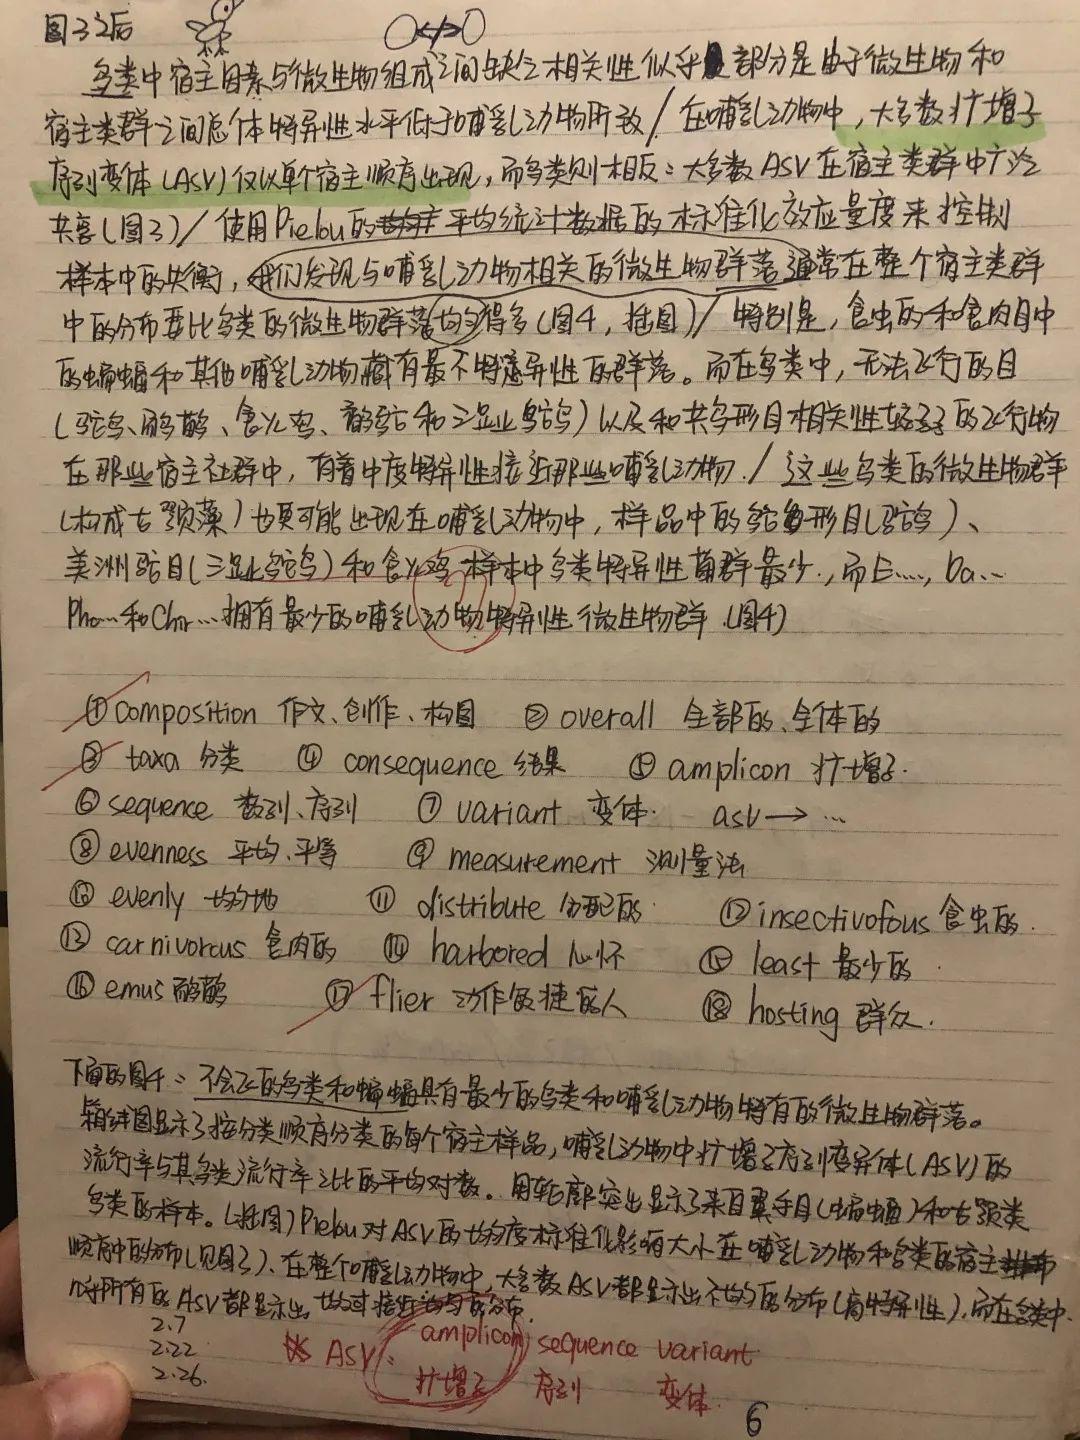 图3之后
鸟类中宿主因素与微生物组成之间缺乏相关性似乎部分是由于微生物和
宿主类群之间总体特异性水平低于哺乳动物所致/在哺乳动物中,大多数扩增子
序列变体(ASV)仅以单个宿主顺序出现,而鸟类则相反:大多数ASV在宿主类群中广泛
共享(图3)/使用Pielou的平均统计数据的标准化效应量度来控制
样本中的失衡,我们发现与哺乳动物相关的微生物群落通常在整个宿主类群
中的分布要比鸟类的微生物群落均匀得多(图4,插图)/特别是,食虫的和食肉目中
的蝙蝠和其他哺乳动物藏有最不特异性的群落。而在鸟类中,无法飞行的目
(鸵鸟、鸸鹋、食火鸡、鹬鸵和三趾鸵鸟)以及和其鸟形目相关性较弱的飞行物
在那些宿主社群中,有着中度特异性接近那些哺乳动物./这些鸟类的微生物群
(构成古颚藻)也更可能出现在哺乳动物中,样品中的鸵鸟形目(鸵鸟)、
美洲鸵目(三趾鸵鸟)和食火鸡样本中鸟类特异性菌群最少.,而E....,Da...
Pho...和Chir...拥有最少的哺乳动物特异性微生物群.(图4)
①composition 作文、创作、构图 ②overall 全部的、全体的
③taxa 分类 ④consequence 结果 ⑤amplicon 扩增子.
⑥sequence 数列、序列 ⑦variant 变体. asv→...
⑧evenness 平均.平等 ⑨measurement 测量法
⑩evenly 均匀地 ⑪distribute 分配的. ⑫insectivofous 食虫的.
⑬carnivorcus 食肉的 ⑭harbored 心怀 ⑮least 最少的.
⑯emus 鸸鹋 ⑰flier 动作敏捷的人 ⑱hosting 群众.
下面的图4:不会飞的鸟类和蝙蝠具有最少的鸟类和哺乳动物特有的微生物群落。
箱线图显示了按分类顺序分类的每个宿主样品,哺乳动物中扩增子序列变异体(ASV)的
流行率与其鸟类流行率之比的平均对数。用轮廓突出显示了来自翼手目(蝙蝠)和古颚类
鸟类的样本。(插图)Pielou对ASV的均匀度标准化影响大小在哺乳动物和鸟类的宿主
顺序中的分布(见图3)、在整个哺乳动物中,大多数ASV都显示出不均匀的分布(高特异性),而在鸟类中.
几乎所有的ASV都显示出均匀或接近均匀的分布.
2.7
2.22
2.26.
ASV: amplicon sequence variant
扩增子 序列 变体.
6